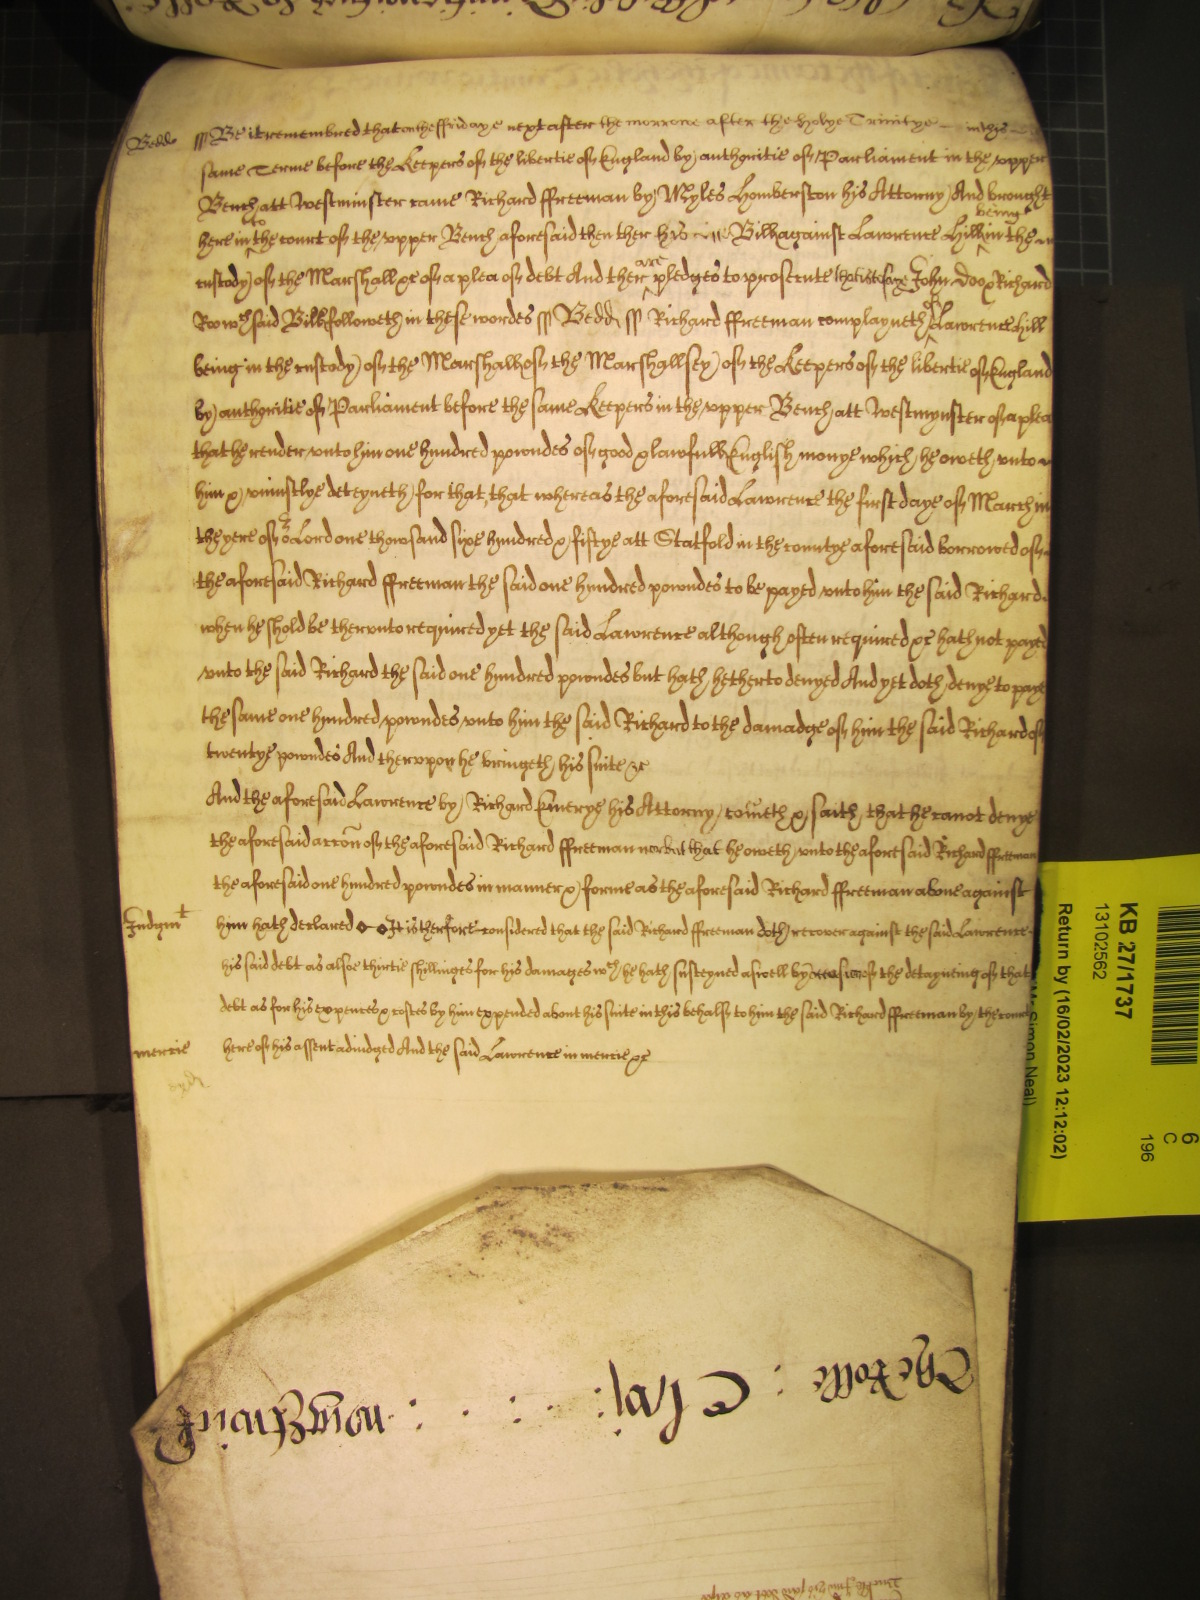 Bedd ss Be it remembred that on the ffridaye next after the morrowe after the holye Trinitye in this
same Terme before the Keepers of the libertie of England by authoritie of Parliament in the vpper
Bench att Westminster came Richard ffreeman by Myles Homberston his Attorny And brought
being
here in to the court of the vpper Bench aforesaid then ther his Bill against Lawrence Hill in the
custody of the Marshall &c of a plea of debt And ther are pledges to prosecute that is to saye John Doo & Richard
Roo wch said Bill followeth in these wordes ss Bedd ss Richard ffreeman complayneth of Lawrence Hill
being in the custody of the Marshall of the Marshallsey of the Keepers of the libertie of England
by authoritie of Parliament before the same Keepers in the vpper Bench att Westmynster of a plea
that he render vnto him one hundred powndes of good & lawfull English monye which he oweth vnto
him & vniustlye deteyneth for that, that whereas the aforesaid Lawrence the first daye of March in
the yere of or Lord one thowsand sixe hundred & fiftye att Statfold in the countye aforesaid borrowed of
the aforesaid Richard ffreeman the said one hundred powndes to be payed vnto him the said Richard
when he shold be thervnto required yet the said Lawrence although often required &c hath not payed
vnto the said Richard the said one hundred powndes but hath hetherto denyed And yet doth denye to paye
the same one hundred powndes vnto him the said Richard to the damadge of him the said Richard of
twentye powndes And thervpon he bringeth his suite &c
And the aforesaid Lawrence by Richard Emerye his Attorny cometh & saith that he canot denye
the aforesaid accon of the aforesaid Richard ffreeman nor but that he oweth vnto the aforesaid Richard ffreeman
the aforesaid one hundred powndes in manner & forme as the aforesaid Richard ffreeman above against
Judgmt him hath declared It is therfore considered that the said Richard ffreeman doth recover against the said Lawrence
his said debt as alsoe thirtie shillinges for his damages wch he hath susteyned aswell by occasion of the detayneing of that
debt as for his expences & costes by him expended about his suite in this behalf to him the said Richard ffreeman by the court
mercie here of his assent adiudged And the said Lawrence in mercie &c
The Rolle
KB 27/1737
13102562
Return by (16/02/2023 12:12:02)
Simon Neal)
6
C
196